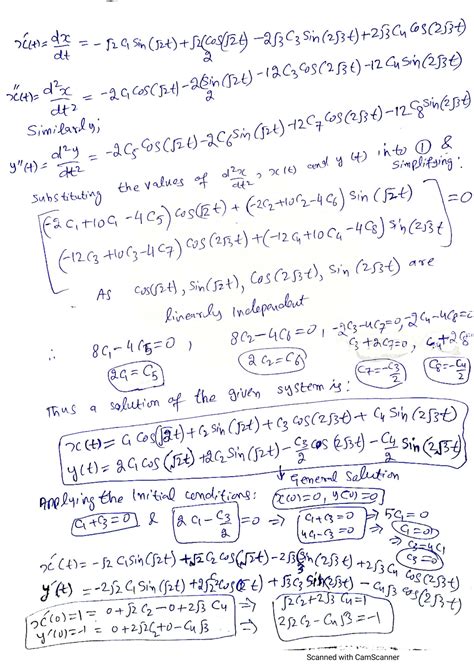 x'(t) = dx/dt = -√2 C₁ Sin(√2t) + √2 C₂ Cos(√2t) - 2√3 C₃ Sin(2√3t) + 2√3 C₄ Cos(2√3t)
x''(t) = d²x/dt² = -2C₁ Cos(√2t) - 2C₂ Sin(√2t) - 12C₃ Cos(2√3t) - 12C₄ Sin(2√3t)
Similarly;
y''(t) = d²y/dt² = -2C₅ Cos(√2t) - 2C₆ Sin(√2t) - 12C₇ Cos(2√3t) - 12C₈ Sin(2√3t)
Substituting the values of d²x/dt², x(t) and y(t) into ① & Simplifying:
(-2C₁+10C₁-4C₅) Cos(√2t) + (-2C₂+10C₂-4C₆) Sin(√2t)
(-12C₃+10C₃-4C₇) Cos(2√3t) + (-12C₄+10C₄-4C₈) Sin(2√3t) =0
As Cos(√2t), Sin(√2t), Cos(2√3t), Sin(2√3t) are
linearly Independent
∴ 8C₁-4C₅=0, 8C₂-4C₆=0, -2C₃-4C₇=0, -2C₄-4C₈=0
2C₁=C₅ 2C₂=C₆ C₃+2C₇=0, C₄+2C₈
C₇=-C₃/2 C₈=-C₄/2
Thus a solution of the given system is:
x(t) = C₁ Cos(√2t) + C₂ Sin(√2t) + C₃ Cos(2√3t) + C₄ Sin(2√3t)
y(t) = 2C₁ Cos(√2t) + 2C₂ Sin(√2t) - C₃/2 Cos(2√3t) - C₄/2 Sin(2√3t)
↓ General Solution
Applying the Initial conditions: x(0)=0, y(0)=0
C₁+C₃=0 & 2C₁-C₃/2=0 ⇒ C₁+C₃=0 ⇒ 5C₁=0
4C₁-C₃=0 C₁=0
C₃=4C₁
C₃=0
x'(t) = -√2 C₁ Sin(√2t) + √2 C₂ Cos(√2t) - 2√3 C₃ Sin(2√3t) + 2√3 C₄ Cos(2√3t)
y'(t) = -2√2 C₁ Sin(√2t) + 2√2 C₂ Cos(√2t) + √3 C₃ Sin(2√3t) - C₄√3 Cos(2√3t)
x'(0)=1 = 0+√2C₂-0+2√3C₄ ⇒ √2C₂+2√3C₄=1
y'(0)=-1 = 0+2√2C₂+0-C₄√3 ⇒ 2√2C₂-C₄√3=-1
Scanned with CamScanner